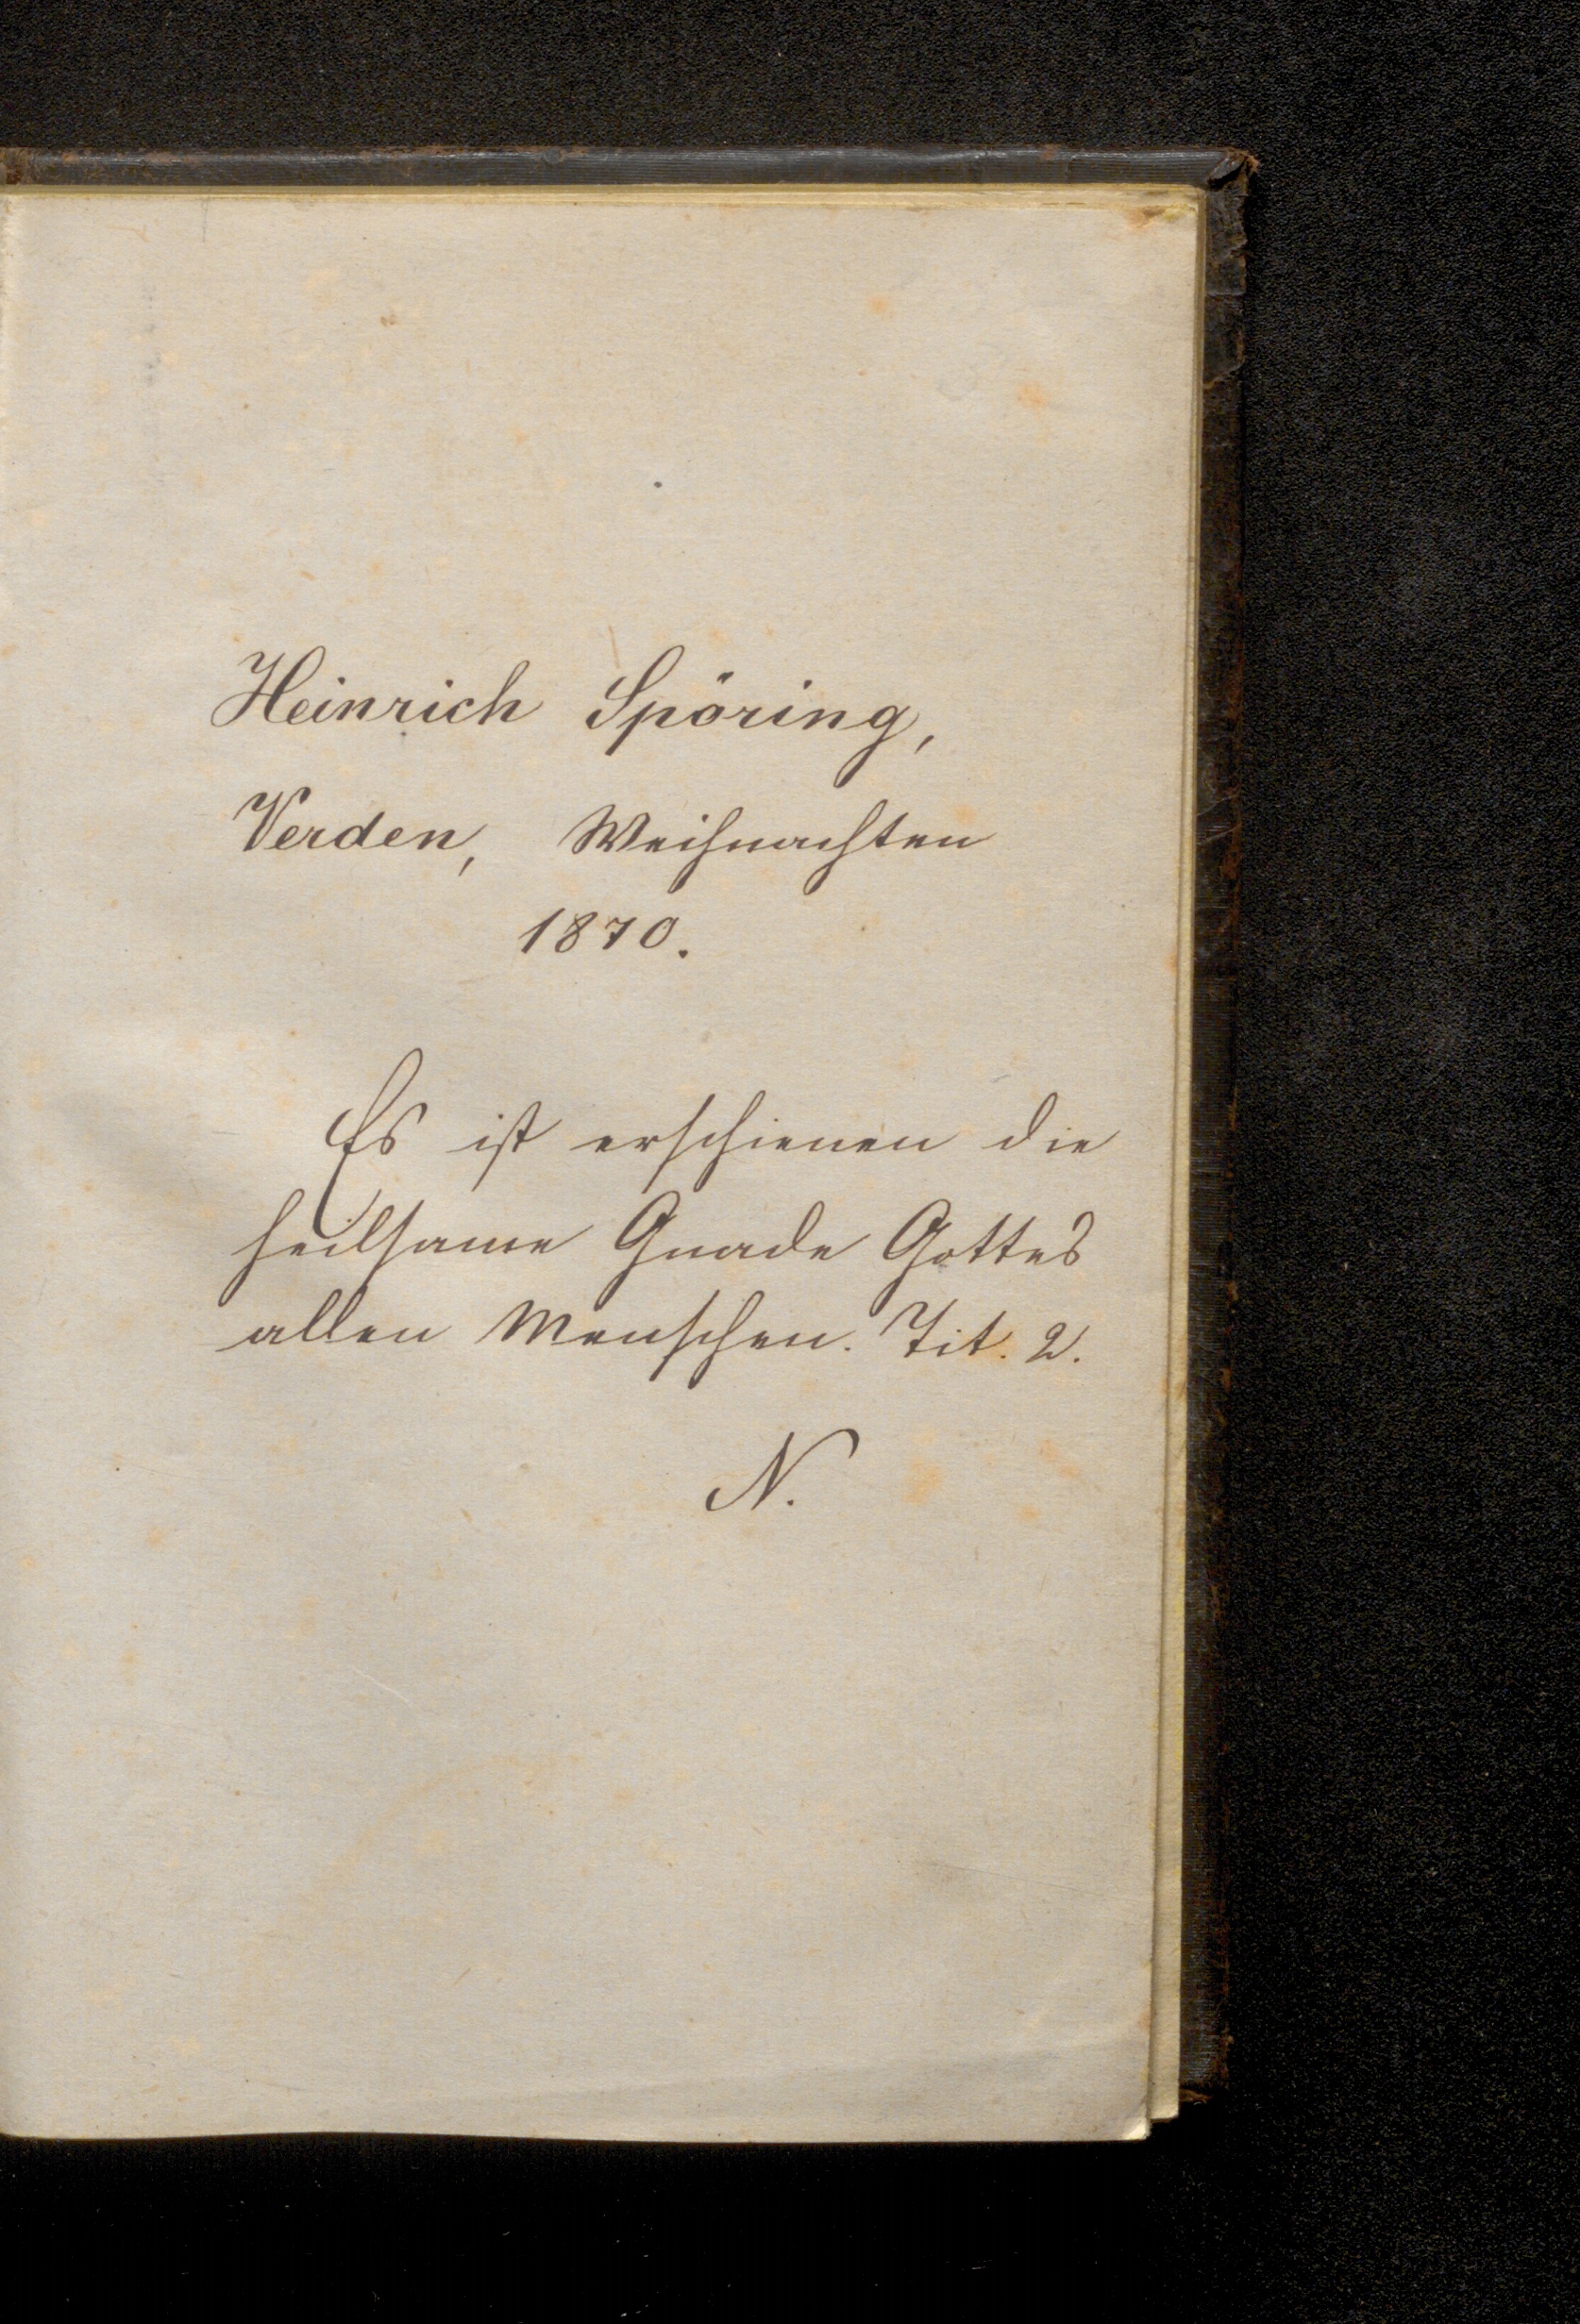 Heinrich Spöring,
Verden, Weihnachten
1870.
Es ist erschienen die
heilsame Gnade Gottes
allen Menschen. Tit. 2.
N.